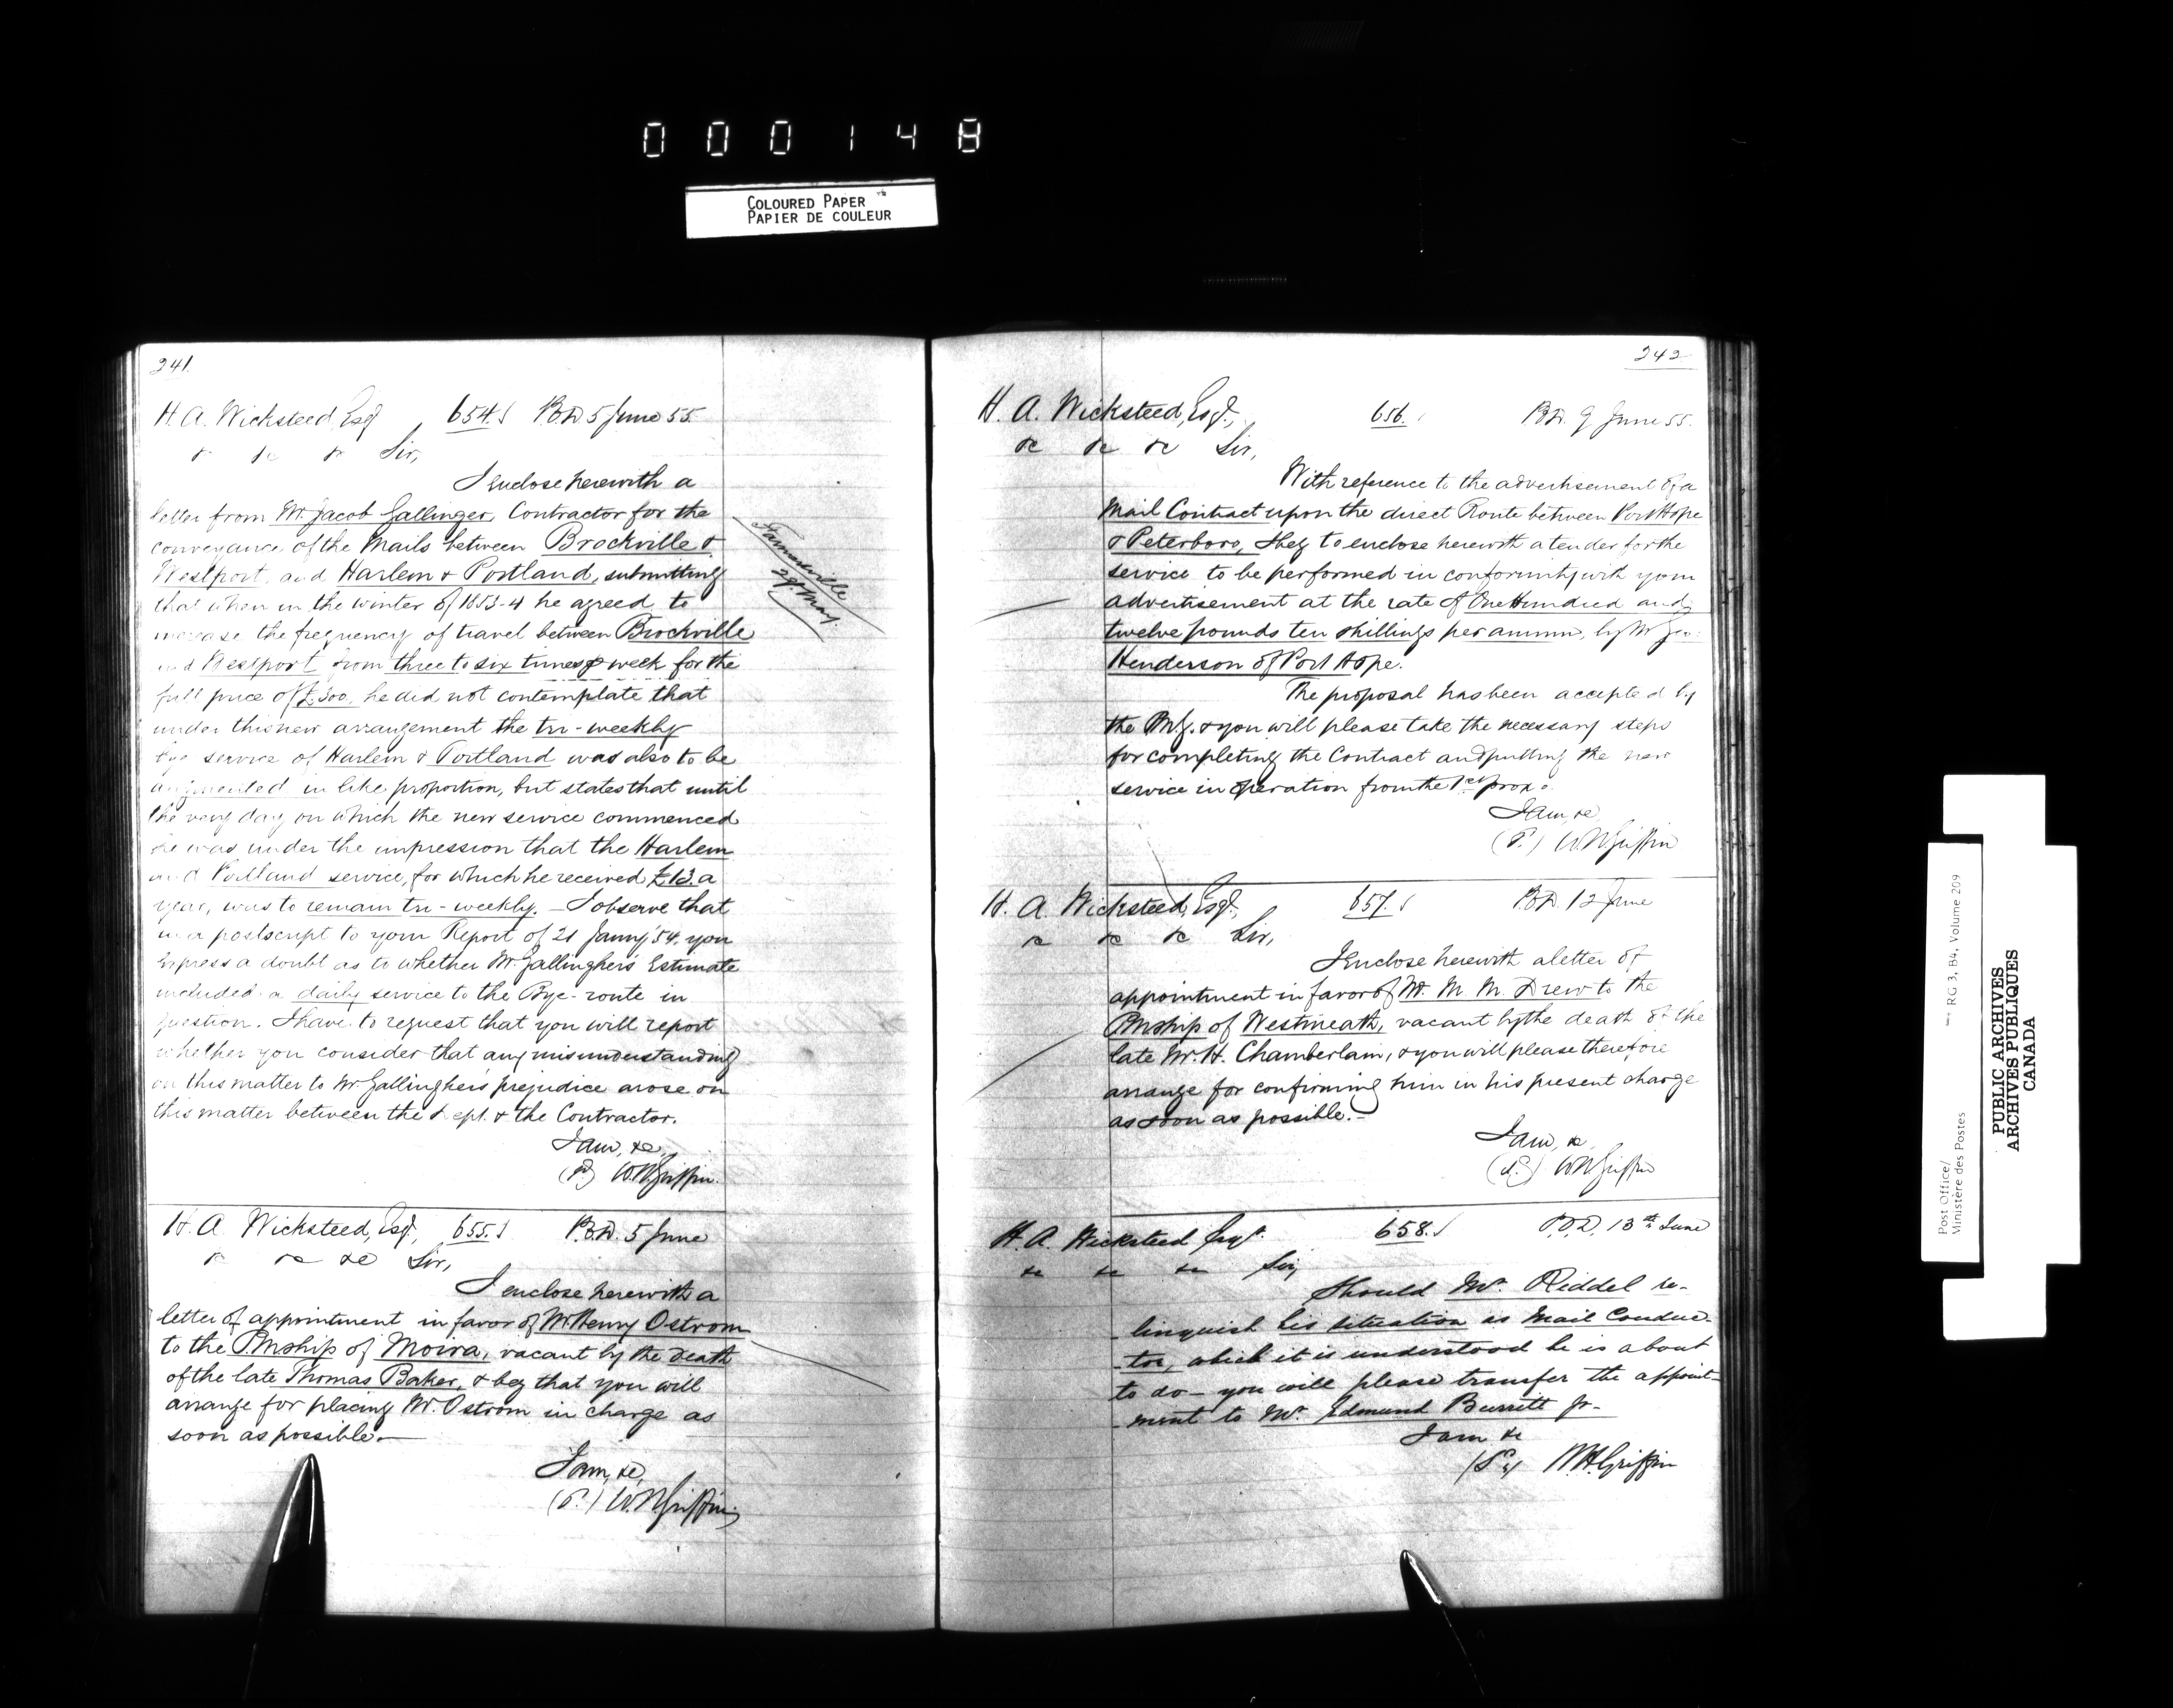 000148
COLOURED PAPER
PAPIER DE COULEUR
241.
H. A. Wicksteed, Esq 654. P.O.D. 5 June 55.
&c &c &c Sir,
I enclose herewith a
letter from Mr. Jacob Gallinger, Contractor for the
conveyance of the Mails between Brockville &
Westport, and Harlem & Portland, submitting
that when in the winter of 1853-4 he agreed to
increase the frequency of travel between Brockville
and Westport from three to six times a week for the
full price of £300, he did not contemplate that
under this new arrangement the tri-weekly
bye service of Harlem & Portland was also to be
augmented in like proportion, but states that until
the very day on which the new service commenced
he was under the impression that the Harlem
and Portland service, for which he received £13. a
year, was to remain tri-weekly. — I observe that
in a postscript to your Report of 21 Janny '54, you
express a doubt as to whether Mr. Gallingher's Estimate
included a daily service to the Bye-route in
question. I have to request that you will report
whether you consider that any misunderstanding
on this matter to Mr Gallingher's prejudice arose on
this matter between the Dept. & the Contractor.
I am, &c
(S.) W.H. Griffin.
Farmersville
29. May.
H. A. Wicksteed, Esq., 655. P.O.D. 5 June
&c &c &c Sir,
I enclose herewith a
letter of appointment in favor of Mr Henry Ostrom
to the PMship of Moira, vacant by the death
of the late Thomas Baker, & beg that you will
arrange for placing Mr. Ostrom in charge as
soon as possible. —
I am, &c,
(S.) W.H. Griffin
242
H. A. Wicksteed, Esq., 656. P.O.D. 9 June 55.
&c &c &c Sir,
With reference to the advertisement of a
Mail Contract upon the direct Route between Port Hope
& Peterboro, I beg to enclose herewith a tender for the
service to be performed in conformity with your
advertisement at the rate of One Hundred and
twelve pounds ten shillings per annum, by Mr Geo:
Henderson of Port Hope.
The proposal has been accepted by
the P.M.G. & you will please take the necessary steps
for completing the Contract and putting the new
service in operation from the 1st prox.
I am, &c
(S.) W H Griffin
H. A. Wicksteed, Esq., 657. P.O.D. 12 June
&c &c &c Sir,
I enclose herewith a letter of
appointment in favor of Mr. M. M. Drew to the
PMship of Westmeath, vacant by the death of the
late Mr. H. Chamberlain, & you will please therefore
arrange for confirming him in his present charge
as soon as possible. —
I am, &c
(S.) W H Griffin
H. A. Wicksteed Esqr. 658. P.O.D. 13th June
&c &c &c Sir,
Should Mr. Riddel re-
-linquish his situation as Mail Conduc-
-tor, which it is understood he is about
to do — you will please transfer the appoint-
-ment to Mr. Edmund Burritt Jr. —
I am &c
(Sd) W H Griffin
Post Office/
Ministère des Postes
RG 3, B4, Volume 209
PUBLIC ARCHIVES
ARCHIVES PUBLIQUES
CANADA